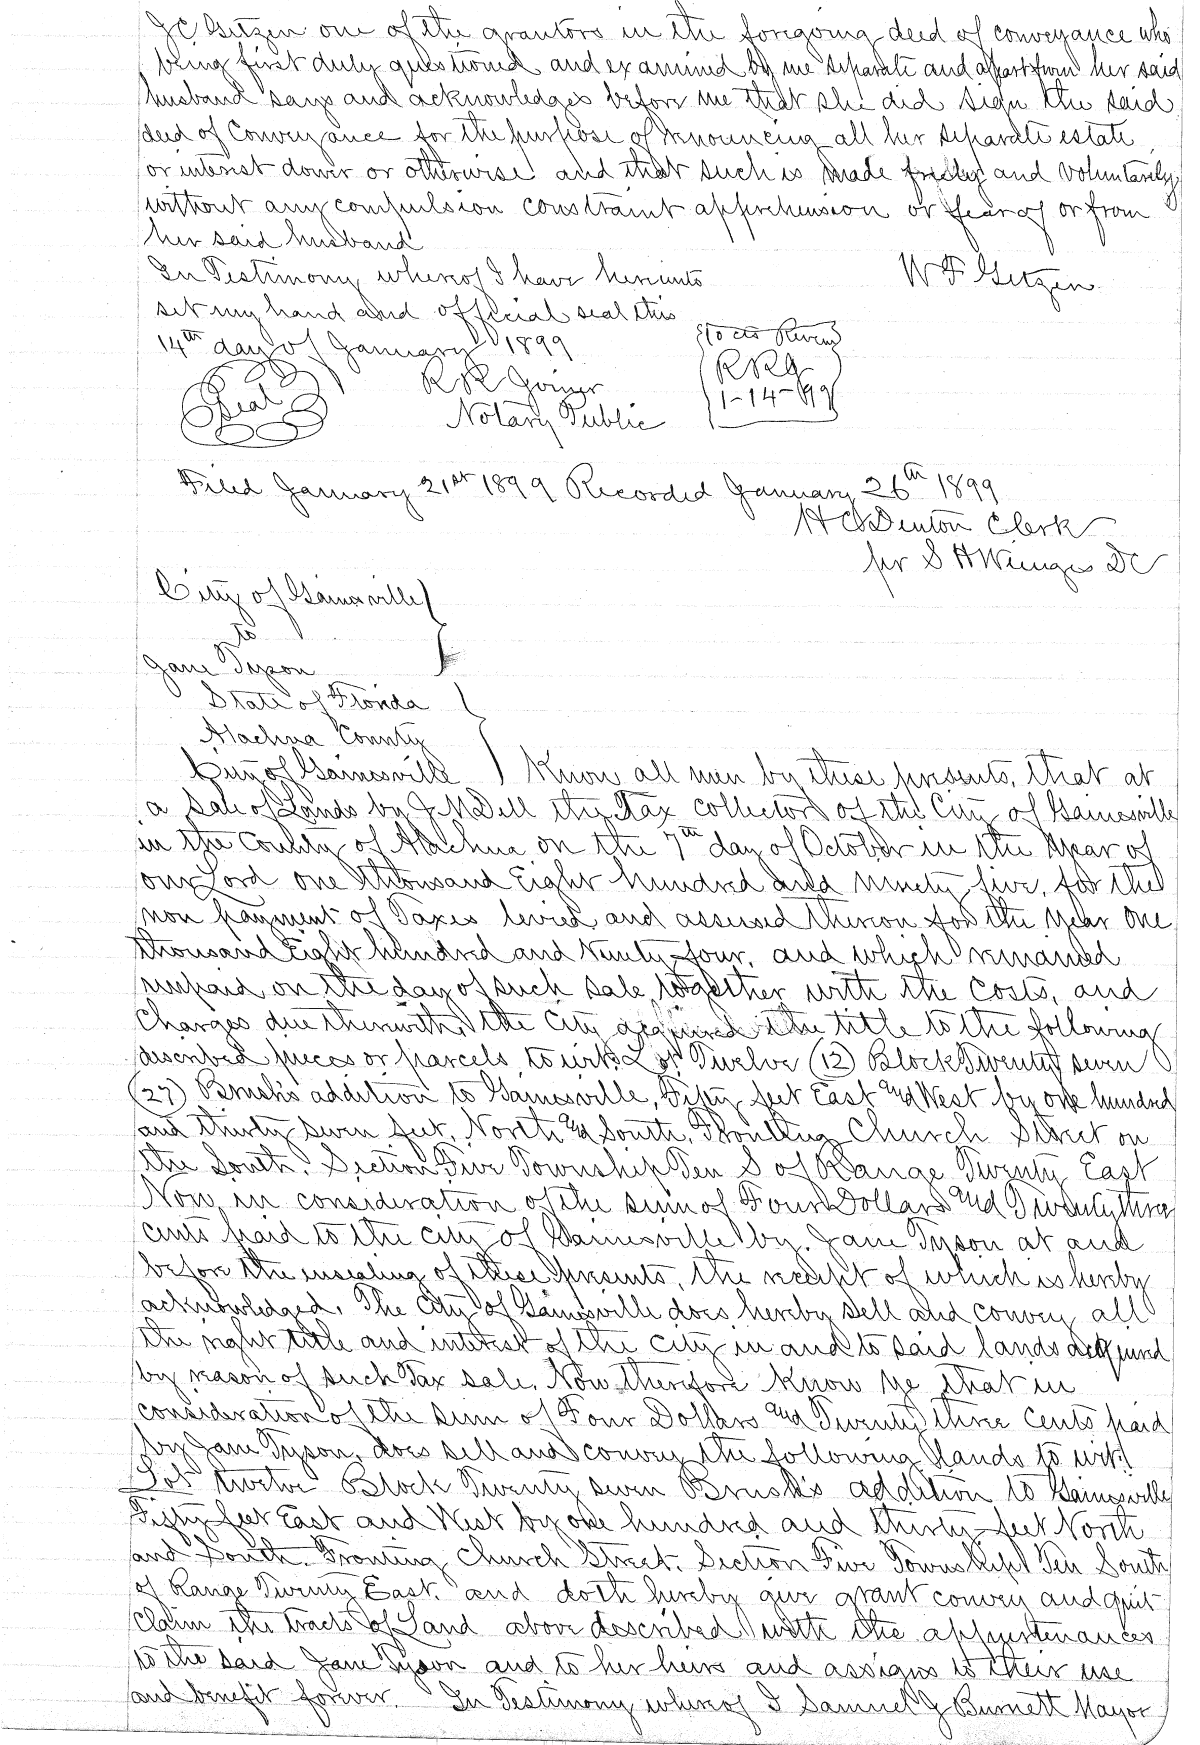 J C Gitzen one of the grantors in the foregoing deed of conveyance who
being first duly questioned and examined by me separate and apart from her said
husband says and acknowledges before me that she did sign the said
deed of Conveyance for the purpose of renouncing all her separate estate
or interest dower or otherwise and that such is made freely and voluntarily
without any compulsion constraint apprehension or fear of or from
her said husband
In Testimony whereof I have hereunto
W F Gitzen
set my hand and official seal this
14th day of January 1899
10 cts Reven
R R J
1-14-99
Seal
R R Joiner
Notary Public
Filed January 21st 1899 Recorded January 26th 1899
H C Denton Clerk
per S H Wienges DC
City of Gainesville
to
Jane Tyson
State of Florida
Alachua County
City of Gainesville Know all men by these presents, that at
a sale of Lands by J M Dell the Tax collector of the City of Gainesville
in the County of Alachua on the 7th day of October in the Year of
our Lord one thousand Eight hundred and ninety five, for the
non payment of Taxes levied and assessed thereon for the Year One
thousand Eight hundred and Ninety four, and which remained
unpaid on the day of such sale together with the costs, and
charges due therewith, the City acquired the title to the following
described pieces or parcels, to wit: Lot Twelve (12) Block Twenty seven
(27) Brush's addition to Gainesville, Fifty feet East and West by one hundred
and thirty seven feet, North and South, Fronting Church Street on
the South. Section Five Township Ten S of Range Twenty East
Now in consideration of the sum of Four Dollars and Twenty three
cents paid to the city of Gainesville by Jane Tyson at and
before the ensealing of these presents, the receipt of which is hereby
acknowledged, The City of Gainesville does hereby sell and convey all
the right title and interest of the City in and to said lands acquired
by reason of such Tax sale. Now therefore Know ye that in
consideration of the sum of Four Dollars and Twenty three cents paid
by Jane Tyson, does sell and convey the following lands to wit!
Lot twelve Block Twenty seven Brush's addition to Gainesville
Fifty feet East and West by one hundred and thirty feet North
and South. Fronting Church Street. Section Five Township Ten South
of Range Twenty East. and doth hereby give grant convey and quit
claim the tracts of Land above described with the appurtenances
to the said Jane Tyson and to her heirs and assigns to their use
and benefit forever. In Testimony whereof I Samuel J Burnett Mayor